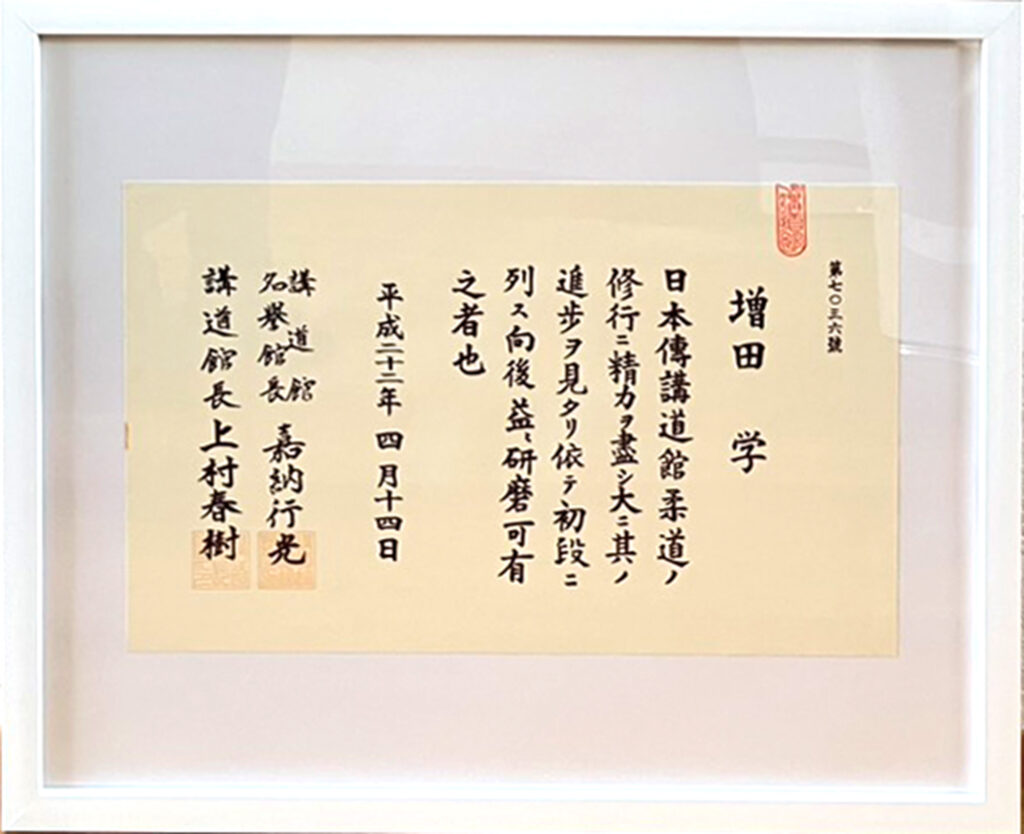 第七〇三六號
増田 学
日本傳講道館柔道ノ
修行ニ精力ヲ盡シ大ニ其ノ
進歩ヲ見タリ依テ初段ニ
列ス向後益〻研磨可有
之者也
平成二十二年四月十四日
講道館
名譽館長 嘉納行光
講道館長 上村春樹